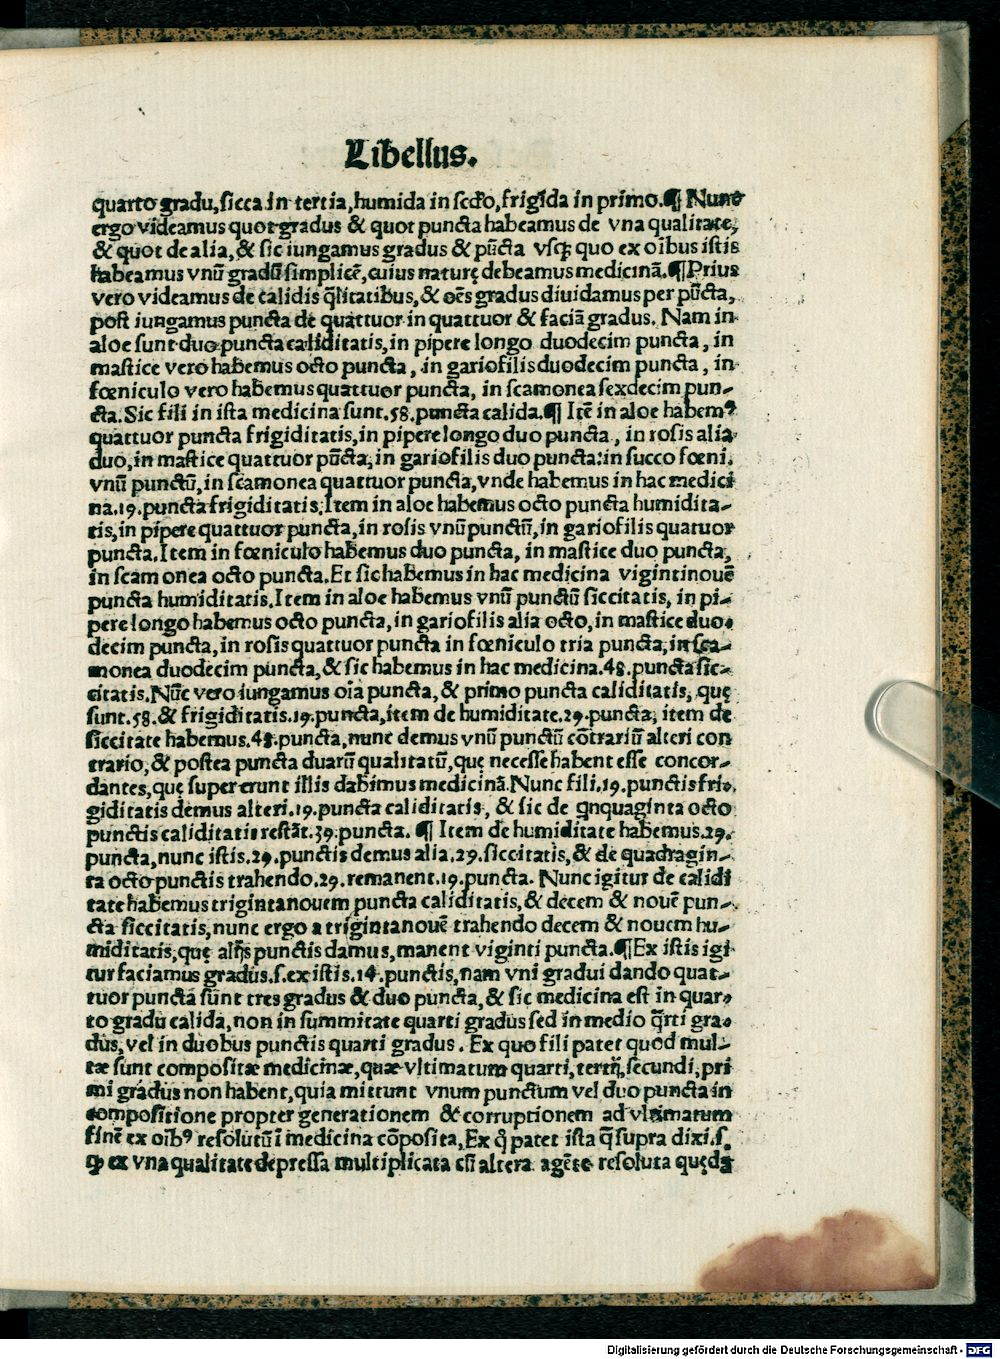 Libellus.
quarto gradu, sicca in tertia, humida in scdo, frigida in primo.¶ Nunc
ergo videamus quot gradus & quot puncta habeamus de vna qualitate,
& quot de alia, & sic iungamus gradus & pūcta vsq; quo ex oībus istis
habeamus vnū gradū simplicē, cuius naturę debeamus medicinā.¶ Prius
vero videamus de calidis q̄litatibus, & oēs gradus diuidamus per pūcta,
post iungamus puncta de quattuor in quattuor & faciā gradus. Nam in
aloe sunt duo puncta caliditatis, in pipere longo duodecim puncta, in
mastice vero habemus octo puncta, in gariofilis duodecim puncta, in
fœniculo vero habemus quattuor puncta, in scamonea sexdecim pun-
cta. Sic fili in ista medicina sunt.58.puncta calida.¶ Itē in aloe habemꝰ
quattuor puncta frigiditatis, in pipere longo duo puncta, in rosis alia
duo, in mastice quattuor pūcta, in gariofilis duo puncta: in succo fœni.
vnū punctū, in scamonea quattuor puncta, vnde habemus in hac medici
na.19.puncta frigiditatis: Item in aloe habemus octo puncta humidita-
tis, in pipere quattuor puncta, in rosis vnū punctū, in gariofilis quatuor
puncta. Item in fœniculo habemus duo puncta, in mastice duo puncta,
in scam onea octo puncta. Et sic habemus in hac medicina vigintinouē
puncta humiditatis. Item in aloe habemus vnū punctū siccitatis, in pi-
pere longo habemus octo puncta, in gariofilis alia octo, in mastice duo-
decim puncta, in rosis quattuor puncta in fœniculo tria puncta, in sca-
monea duodecim puncta, & sic habemus in hac medicina.48.puncta sic-
citatis. Nūc vero iungamus oīa puncta, & primo puncta caliditatis, quę
sunt.58.& frigiditatis.19.puncta, item de humiditate.29.puncta, item de
siccitate habemus.48.puncta, nunc demus vnū punctū cōtrariū alteri con
trario, & postea puncta duarū qualitatū, quę necesse habent esse concor-
dantes, quę supererunt illis dabimus medicinā. Nunc fili.19.punctis fri-
giditatis demus alteri.19.puncta caliditatis, & sic de qnquaginta octo
punctis caliditatis restāt.39.puncta.¶ Item de humiditate habemus.29.
puncta, nunc istis.29.punctis demus alia.29.siccitatis, & de quadragin-
ta octo punctis trahendo.29.remanent.19.puncta. Nunc igitur de calidi
tate habemus trigintanouem puncta caliditatis, & decem & nouē pun-
cta siccitatis, nunc ergo a trigintanouē trahendo decem & nouem hu-
miditatis, quę alijs punctis damus, manent viginti puncta.¶ Ex istis igi
tur faciamus gradus.s.ex istis.14.punctis, nam vni gradui dando quat-
tuor puncta sunt tres gradus & duo puncta, & sic medicina est in quar-
to gradu calida, non in summitate quarti gradus sed in medio q̄rti gra-
dus, vel in duobus punctis quarti gradus. Ex quo fili patet quod mul-
tæ sunt compositæ medicinæ, quæ vltimatum quarti, tertij, secundi, pri
mi gradus non habent, quia mittunt vnum punctum vel duo puncta in
compositione propter generationem & corruptionem ad vltimatum
finē ex oībꝰ resolutū ī medicina cōposita. Ex q̇ patet ista q̄ supra dixi.s.
ꝙ ex vna qualitate depressa multiplicata cū altera agēte resoluta quędā
Digitalisierung gefördert durch die Deutsche Forschungsgemeinschaft - DFG